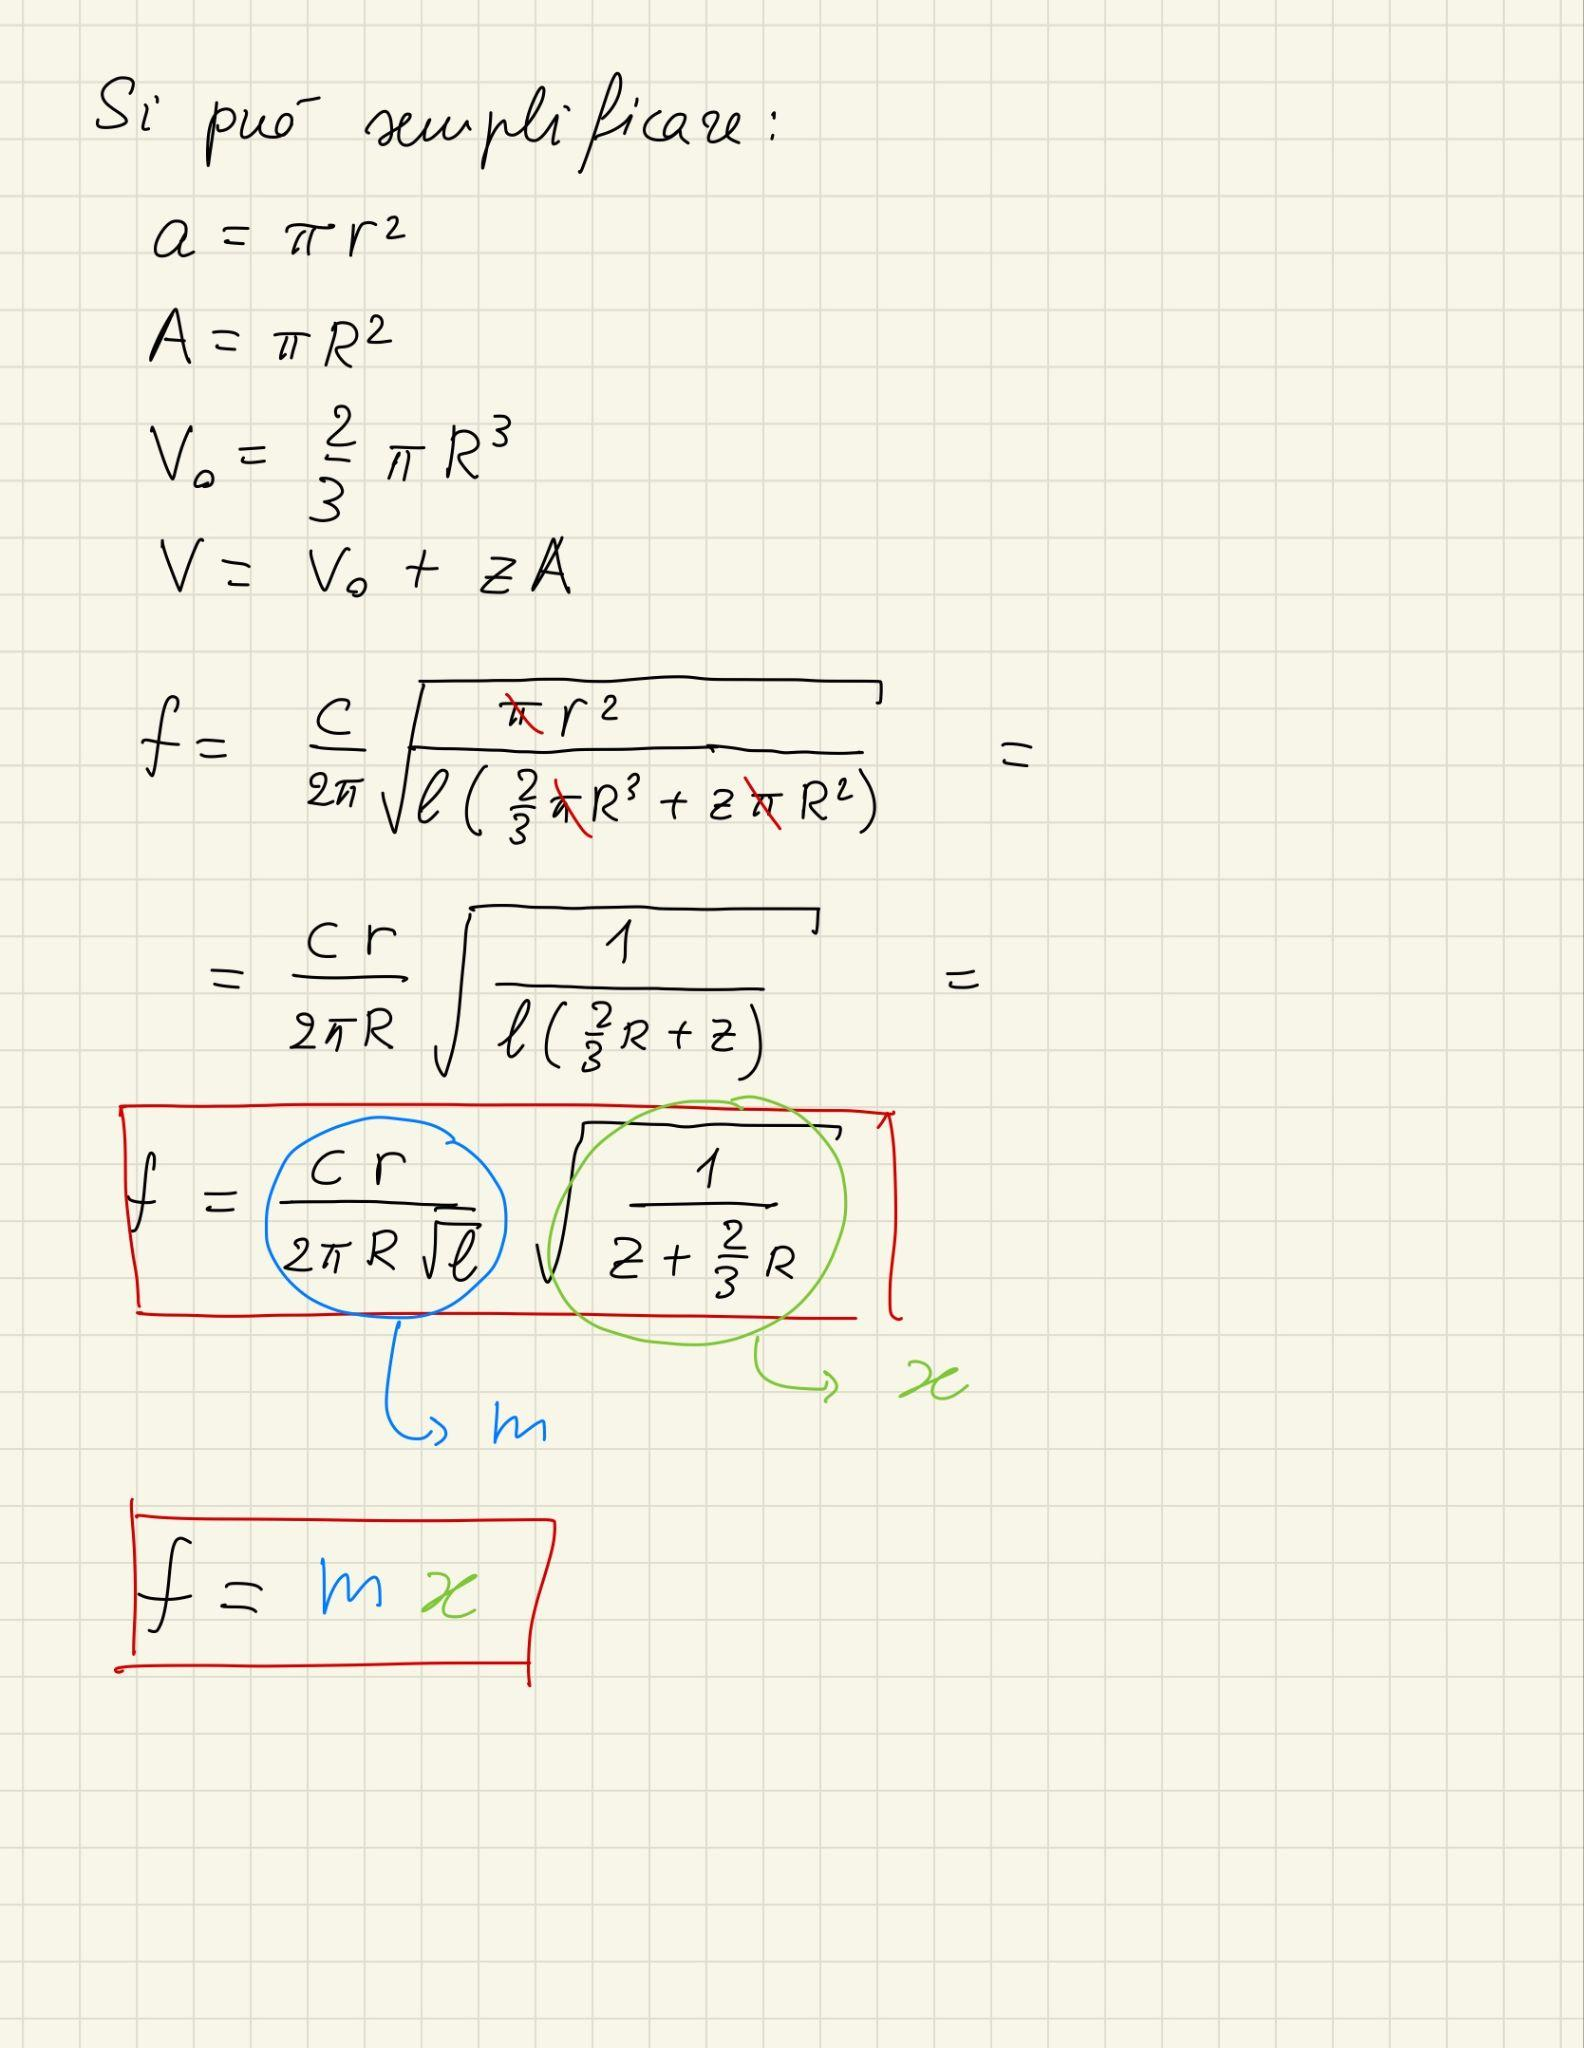 Si può semplificare:
a = π r²
A = π R²
V₀ = 2/3 π R³
V = V₀ + z A
f = c/2π √(π r² / l (2/3 π R³ + z π R²)) =
= c r/2πR √(1 / l (2/3 R + z)) =
f = c r/2π R √l √(1 / z + 2/3 R)
x
m
f = m x